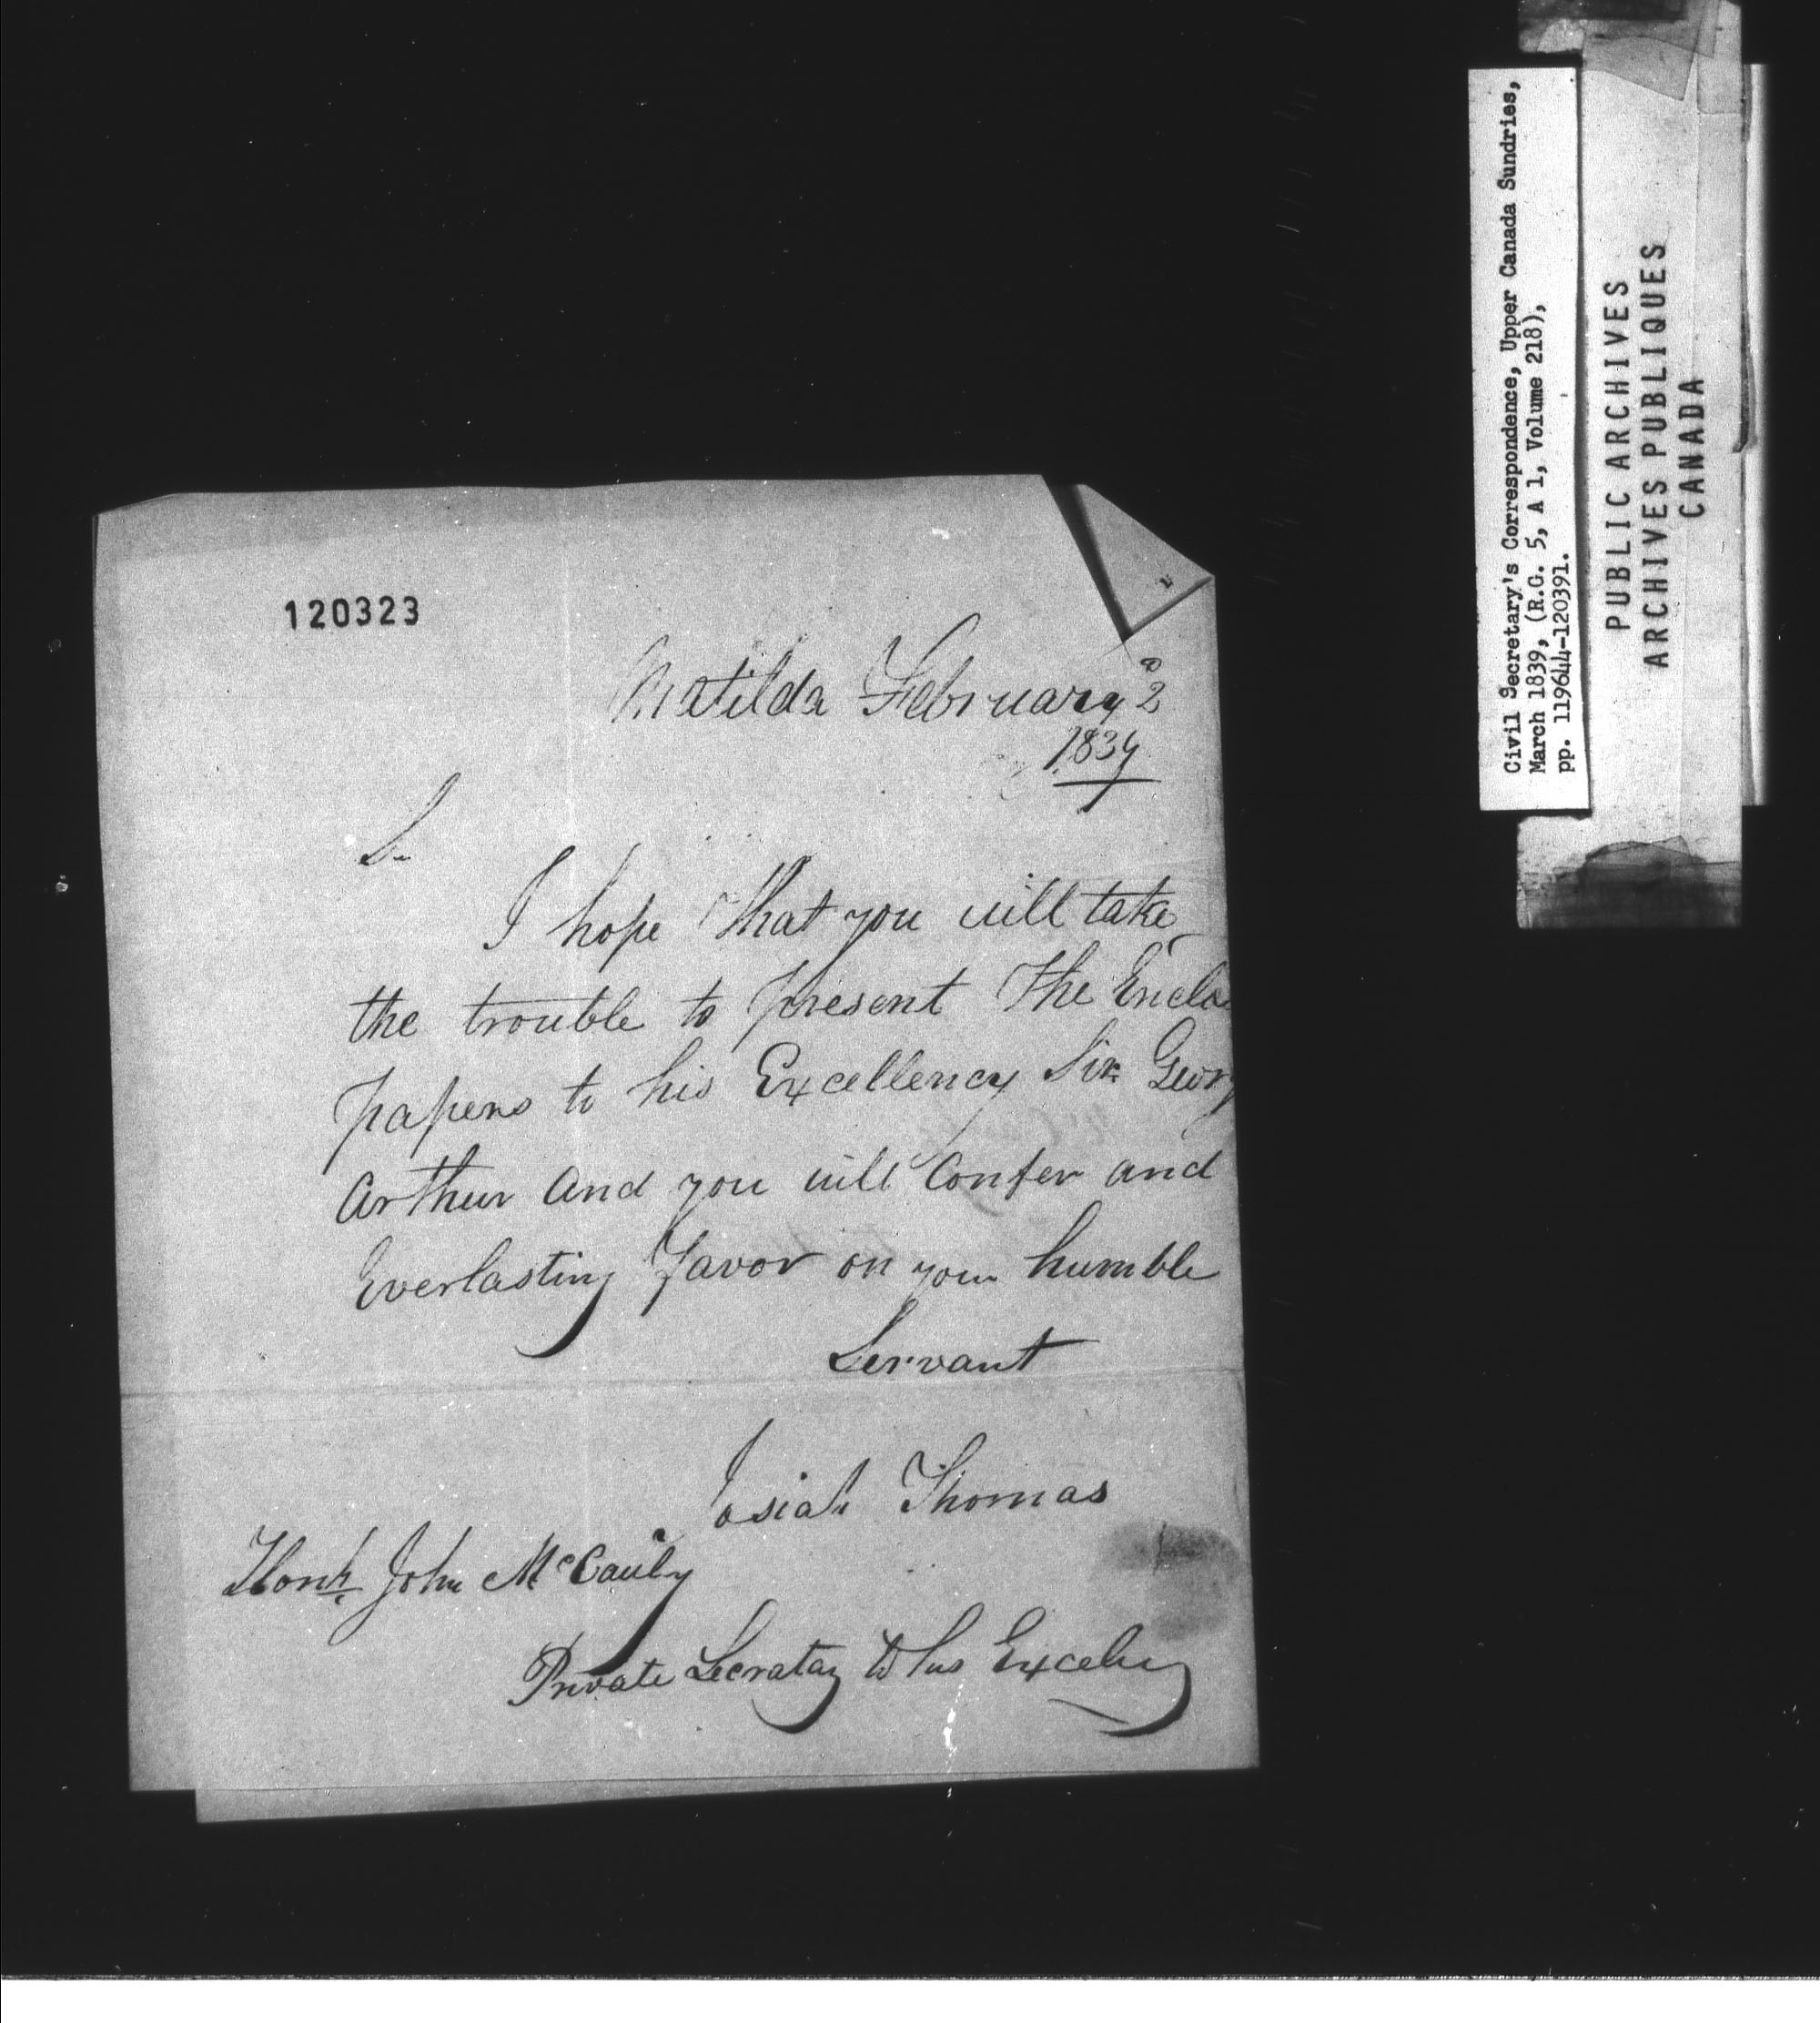 120323
Matilda February 2
1839
Sr
I hope that you will take
the trouble to present The Enclo
papers to his Excellency Sir Georg
Arthur and you will Confer and
Everlasting favor on your humble
Servant
Josiah Thomas
Honl. John McCauly
Private Secratay to his Excelency
Civil Secretary's Correspondence, Upper Canada Sundries,
March 1839, (R.G. 5, A 1, Volume 218),
pp. 119644-120391.
PUBLIC ARCHIVES
ARCHIVES PUBLIQUES
CANADA